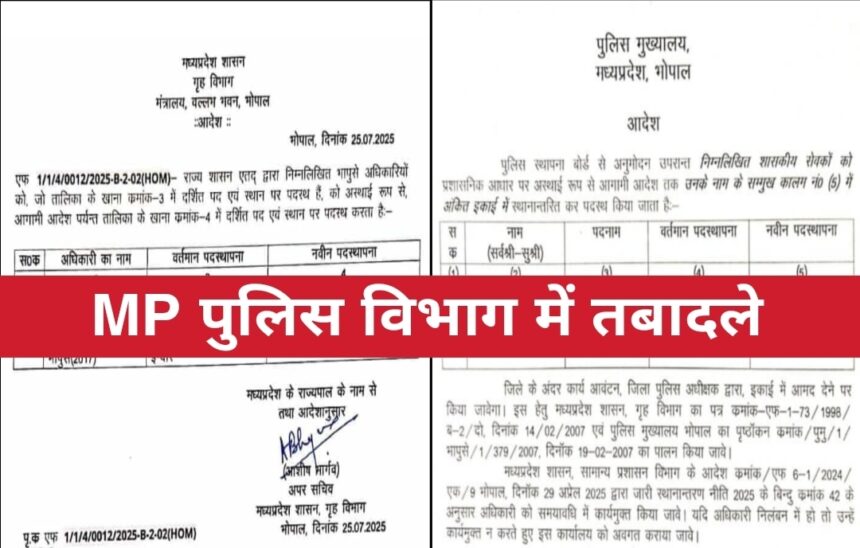 मध्यप्रदेश शासन
गृह विभाग
मंत्रालय, वल्लभ भवन, भोपाल
::आदेश ::
भोपाल, दिनांक 25.07.2025
एफ 1/1/4/0012/2025-B-2-02(HOM)- राज्य शासन एतद् द्वारा निम्नलिखित भापुसे अधिकारियों
को, जो तालिका के खाना कमांक-3 में दर्शित पद एवं स्थान पर पदस्थ हैं, को अस्थाई रूप से,
आगामी आदेश पर्यन्त तालिका के खाना कमांक-4 में दर्शित पद एवं स्थान पर पदस्थ करता है:-
स0क अधिकारी का नाम वर्तमान पदस्थापना नवीन पदस्थापना
भापुसे(2017)
मध्यप्रदेश के राज्यपाल के नाम से
तथा आदेशानुसार
(आशीष भार्गव)
अपर सचिव
मध्यप्रदेश शासन, गृह विभाग
भोपाल, दिनांक 25.07.2025
पृ.क एफ 1/1/4/0012/2025-B-2-02(HOM)
पुलिस मुख्यालय,
मध्यप्रदेश, भोपाल
आदेश
पुलिस स्थापना बोर्ड से अनुमोदन उपरान्त निम्नलिखित शासकीय सेवकों को
प्रशासनिक आधार पर अस्थाई रूप से आगामी आदेश तक उनके नाम के सम्मुख कालम नं0 (5) में
अंकित इकाई में स्थानान्तरित कर पदस्थ किया जाता है:-
स नाम पदनाम वर्तमान पदस्थापना नवीन पदस्थापना
क (सर्वश्री-सुश्री)
(1) (2) (3) (4) (5)
MP पुलिस विभाग में तबादले
जिले के अंदर कार्य आवंटन, जिला पुलिस अधीक्षक द्वारा, इकाई में आमद देने पर
किया जावेगा। इस हेतु मध्यप्रदेश शासन, गृह विभाग का पत्र कमांक-एफ-1-73/1998/
ब-2/दो, दिनांक 14/02/2007 एवं पुलिस मुख्यालय भोपाल का पृष्ठांकन कमांक/पुमु/1/
भापुसे/1/379/2007, दिनॉक 19-02-2007 का पालन किया जावे।
मध्यप्रदेश शासन, सामान्य प्रशासन विभाग के आदेश कमांक/एफ 6-1/2024/
एक/9 भोपाल, दिनॉक 29 अप्रेल 2025 द्वारा जारी स्थानान्तरण नीति 2025 के बिन्दु कमांक 42 के
अनुसार अधिकारी को समयावधि में कार्यमुक्त किया जावे। यदि अधिकारी निलंबन में हो तो उन्हें
कार्यमुक्त न करते हुए इस कार्यालय को अवगत कराया जावे।